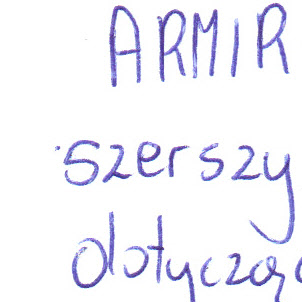 ARMIR
szerszy
dotycząc